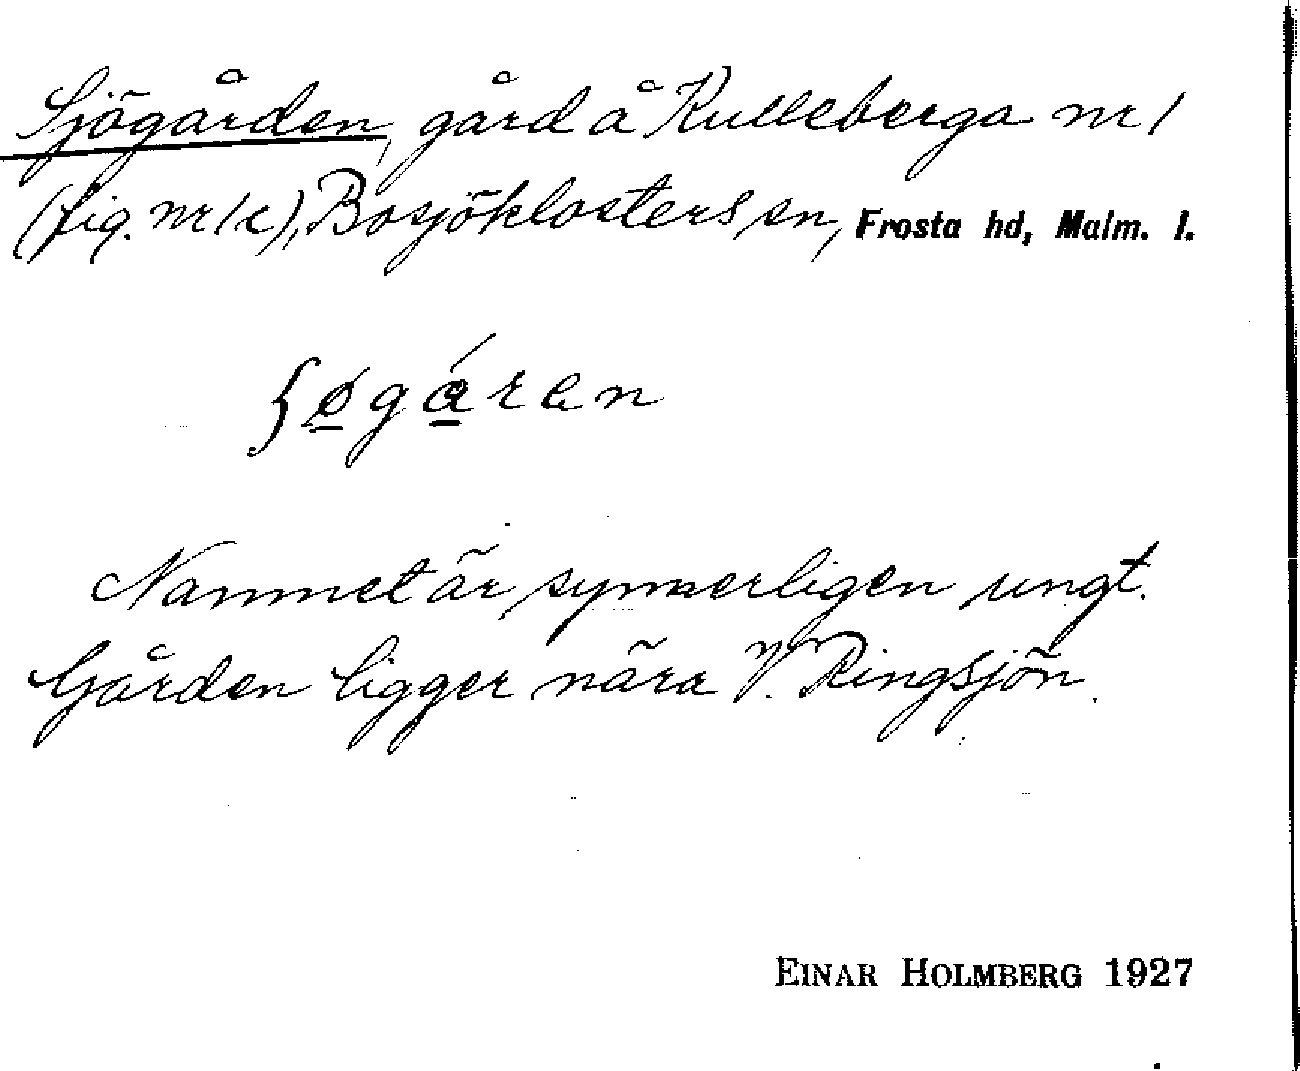 Sjögården, gård å Kulleberga nr 1
(fig. nr 1c), Bosjöklosters sn, Frosta hd, Malm. l.
ʃø̱gáren
Namnet är synnerligen ungt.
Gården ligger nära V. Ringsjön.
EINAR HOLMBERG 1927